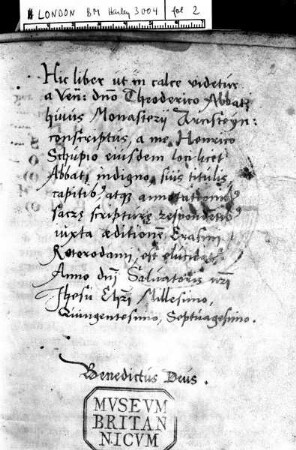 LONDON BM Harley 3004 fol 2
Hic liber ut in calce videtur
a Ven: dno Theoderico Abbate
huius Monastery Arnsteyn:
conscriptus, a me, Henrico
Schupio eiusdem loci licet
Abbati indigno, suis titulis
capitib, atq annotationib
sacrę scripturę respondentib
iuxta æditionem Erasmi
Roterodami, est elucidat
Anno dni Salvatoris nri
Jhesu Chri Millesimo,
Quingentesimo, Septuagesimo.
Benedictus Deus.
MVSEVM
BRITAN
NICVM